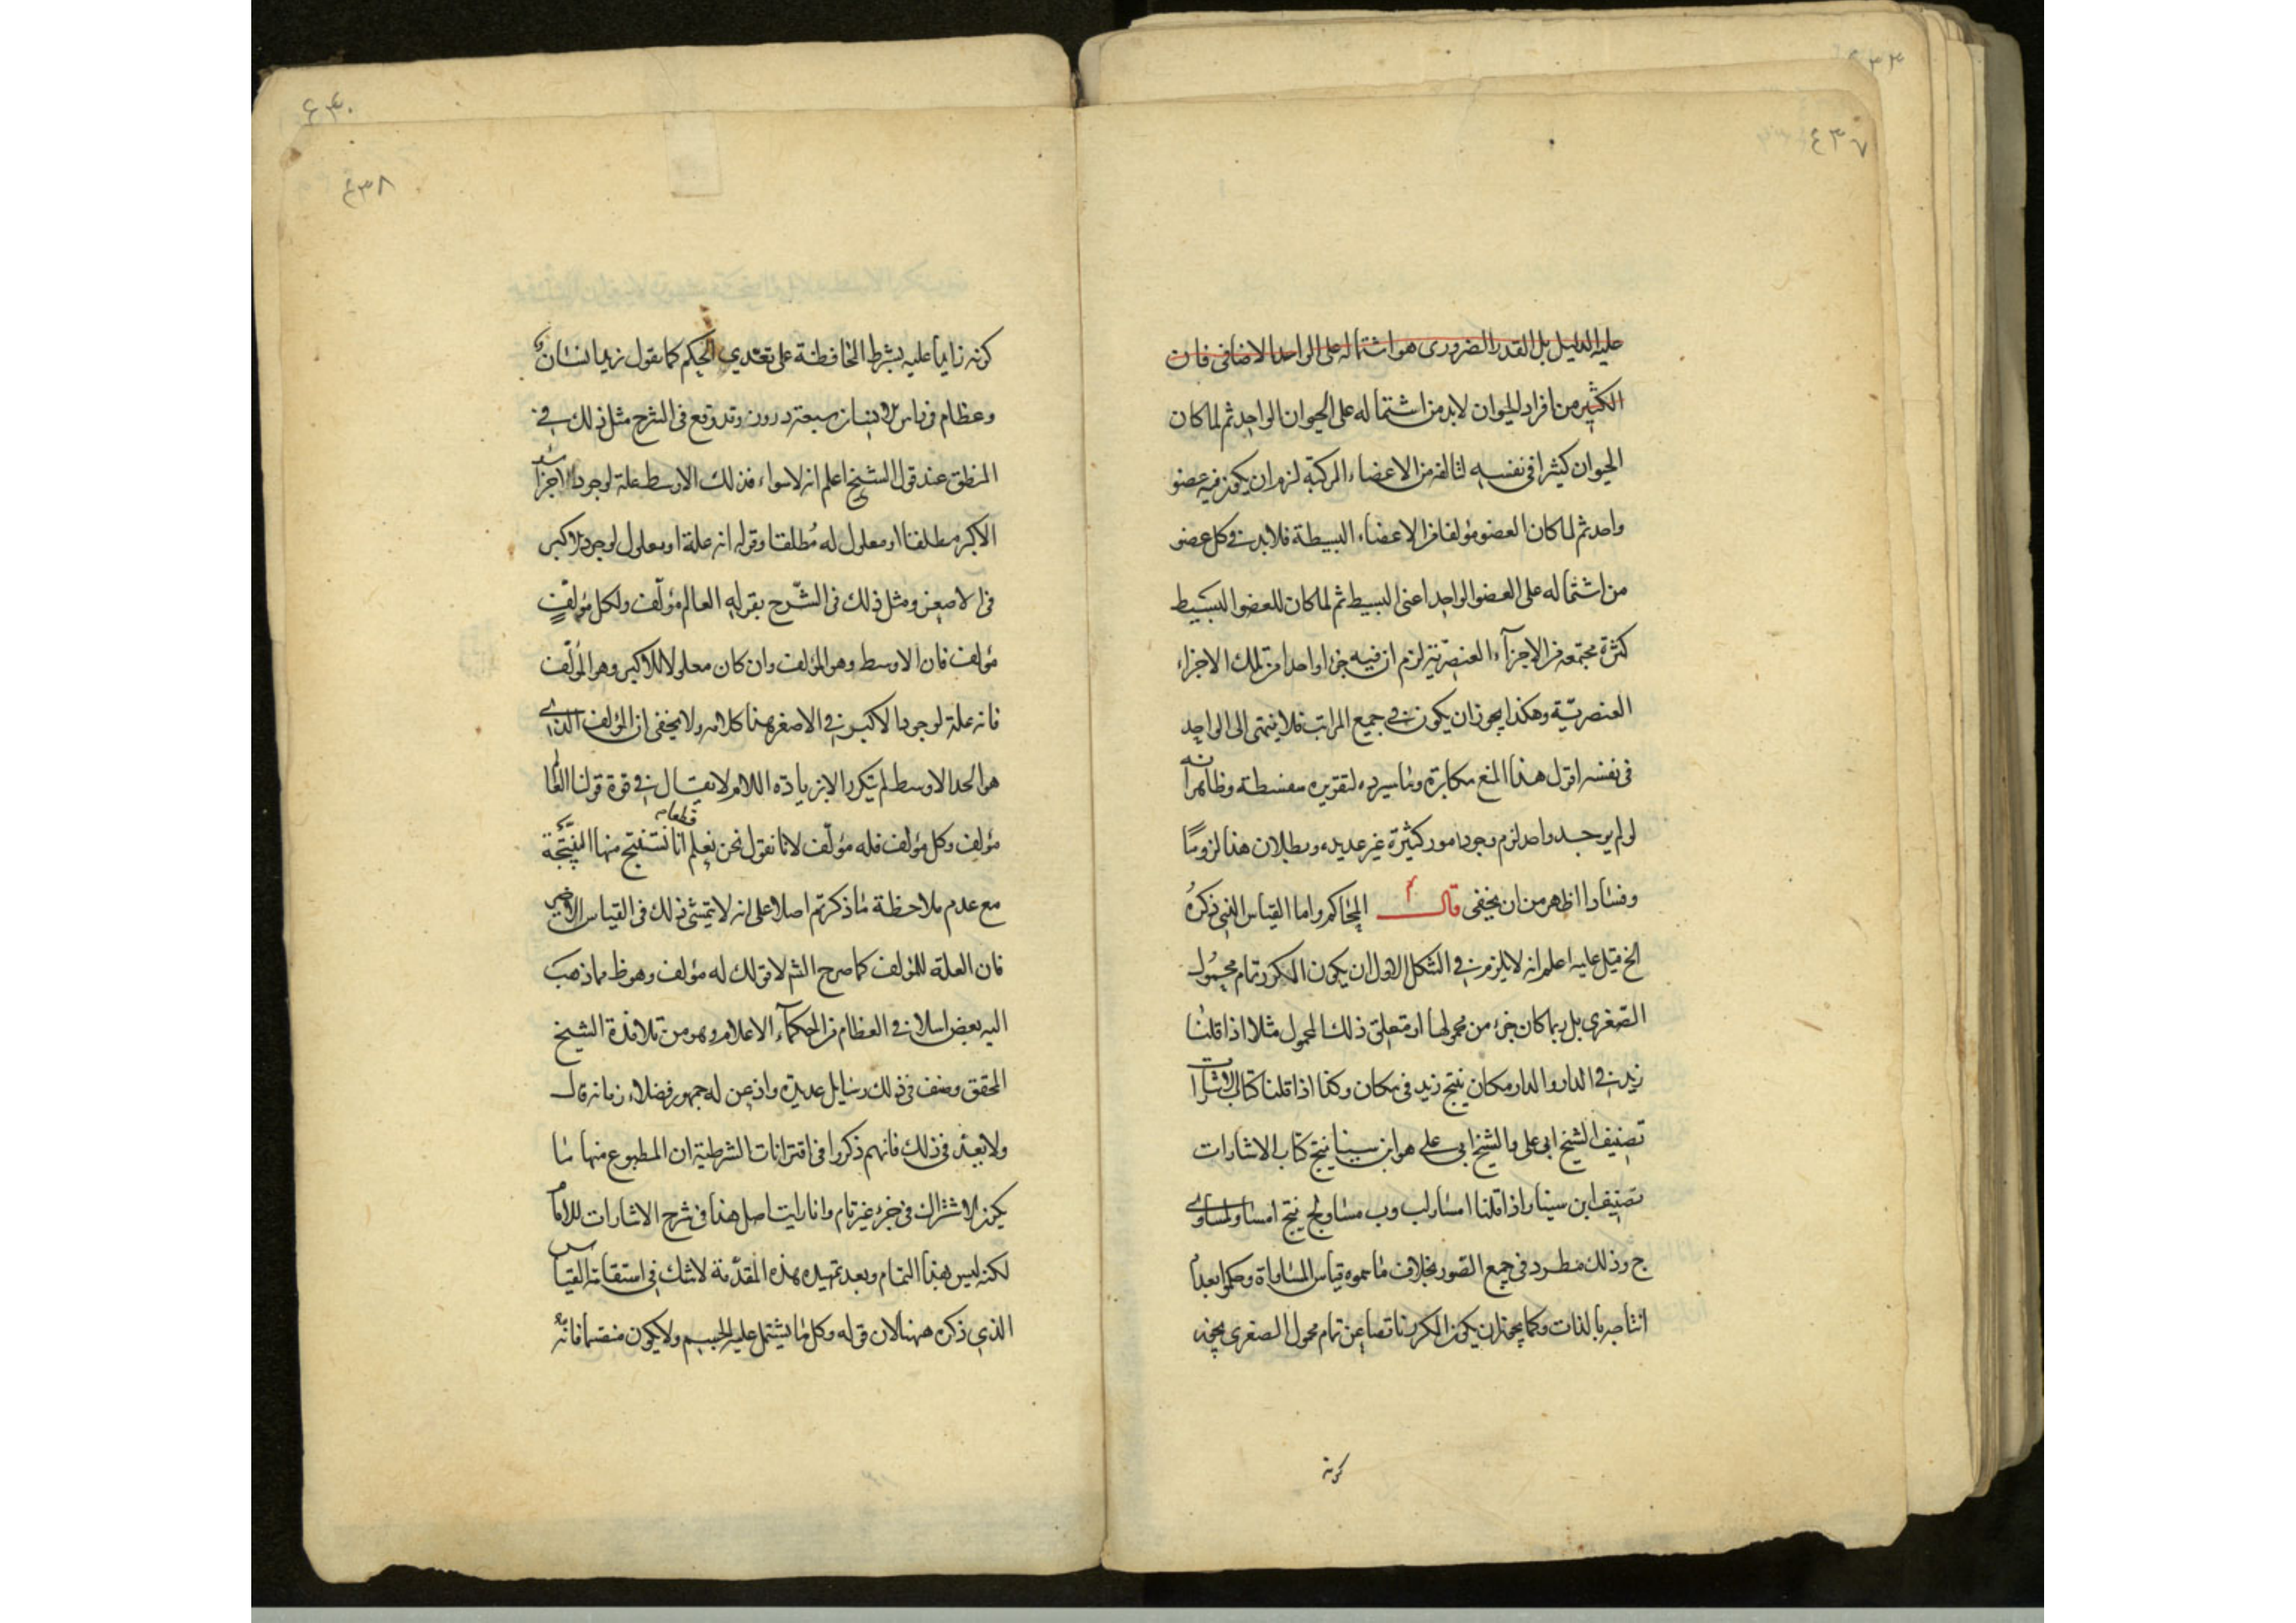 ٤٣٧
عليه الدليل بل القدر الضروري هو اشتماله على الواحد الاضافى فان
الكثير من افراد الحيوان لابد من اشتماله على الحيوان الواحد ثم لما كان
الحيوان كثيرا فى نفسه لتالفه من الاعضاء المركبة لزم ان يكون فيه عضو
واحد ثم لما كان العضو مؤلفا من الاعضاء البسيطة فلابد فى كل عضو
من اشتماله على العضو الواحد اعنى البسيط ثم لما كان للعضو البسيط
كثرة مجتمعة من الاجزاء العنصرية لزم ان فيه جزءا واحدا من تلك الاجزاء
العنصرية وهكذا يجوز ان يكون فى جميع المراتب فلا ينتهى الى الواحد
فى نفسه اقول هذا المنع مكابرة وما سيرده لتقريره سفسطة وظاهر انه
لو لم يوجد واحد لزم وجود امور كثيرة غير عديدة وبطلان هذا لزوما
وفسادا اظهر من ان يخفى قال المحاكم واما القياس الذى ذكره
الخ قيل عليه اعلم انه لا يلزم فى الشكل الاول ان يكون المكرر تمام محمول
الصغرى بل ربما كان جزء من محمولها او متعلق ذلك المحمول مثلا اذا قلنا
زيد فى الدار والدار مكان ينتج زيد فى مكان وكذا اذا قلنا كتاب الاشارات
تصنيف الشيخ ابى على والشيخ ابى على هو ابن سينا ينتج كتاب الاشارات
تصنيف ابن سينا واذا قلنا ا مساو لب وب مساو لج ينتج ا مساو لمساوى
ج وذلك مطرد فى جميع الصور بخلاف ما سموه قياس المساواة وحكموا بعدم
انتاجه بالذات وكما يجوز ان يكون المكرر ناقصا عن تمام محمول الصغرى يجوز
كونه
٤٣٨
كونه زايدا عليه بشرط المحافظة على تعدي الحكم كما يقول زيد انسان
وقد وقع فى الشرح مثل ذلك فى
المنطق عند قول الشيخ اعلم انه لا سواء قولك الاوسط علة لوجود
الاكبر مطلقا او معلول له مطلقا وقوله انه علة او معلول لوجود الاكبر
فى الاصغر ومثل ذلك فى الشرح بقوله العالم مؤلف ولكل مؤلف
مؤلف فان الاوسط وهو المؤلف وان كان معلولا للاكبر وهو المؤلف
فانه علة لوجود الاكبر فى الاصغر هذا كلامه ولا يخفى ان المؤلف الذى
هو الحد الاوسط لم يتكرر الا بزيادة اللام لا يقال فى قوة قولنا العالم
مؤلف وكل مؤلف فله مؤلف لانا نقول نحن نعلم قطعا انا نستنتج منها النتيجة
مع عدم ملاحظة ما ذكرتم اصلا على انه لا يتمشى ذلك فى القياس الاخير
فان العلة للمؤلف كما صرح الشم لا قولك له مؤلف وهو ظ مما ذهب
اليه بعض اسلافى العظام من الحكماء الاعلام وهو من تلامذة الشيخ
المحقق وصنف فى ذلك رسايل عديدة واذعن له جمهور فضلاء زمانه قال
ولا بعد فى ذلك فانهم ذكروا فى اقترانات الشرطية ان المطبوع منها ما
يكون الاشتراك فى جزء غير تام وانا رايت اصل هذا فى شرح الاشارات للامام
لكنه ليس بهذا التمام وبعد تمهيده هذه المقدمة لا شك فى استقامة القياس
الذي ذكره ههنا لان قوله وكل ما يشتمل عليه الجسم ولا يكون منقسما فانه